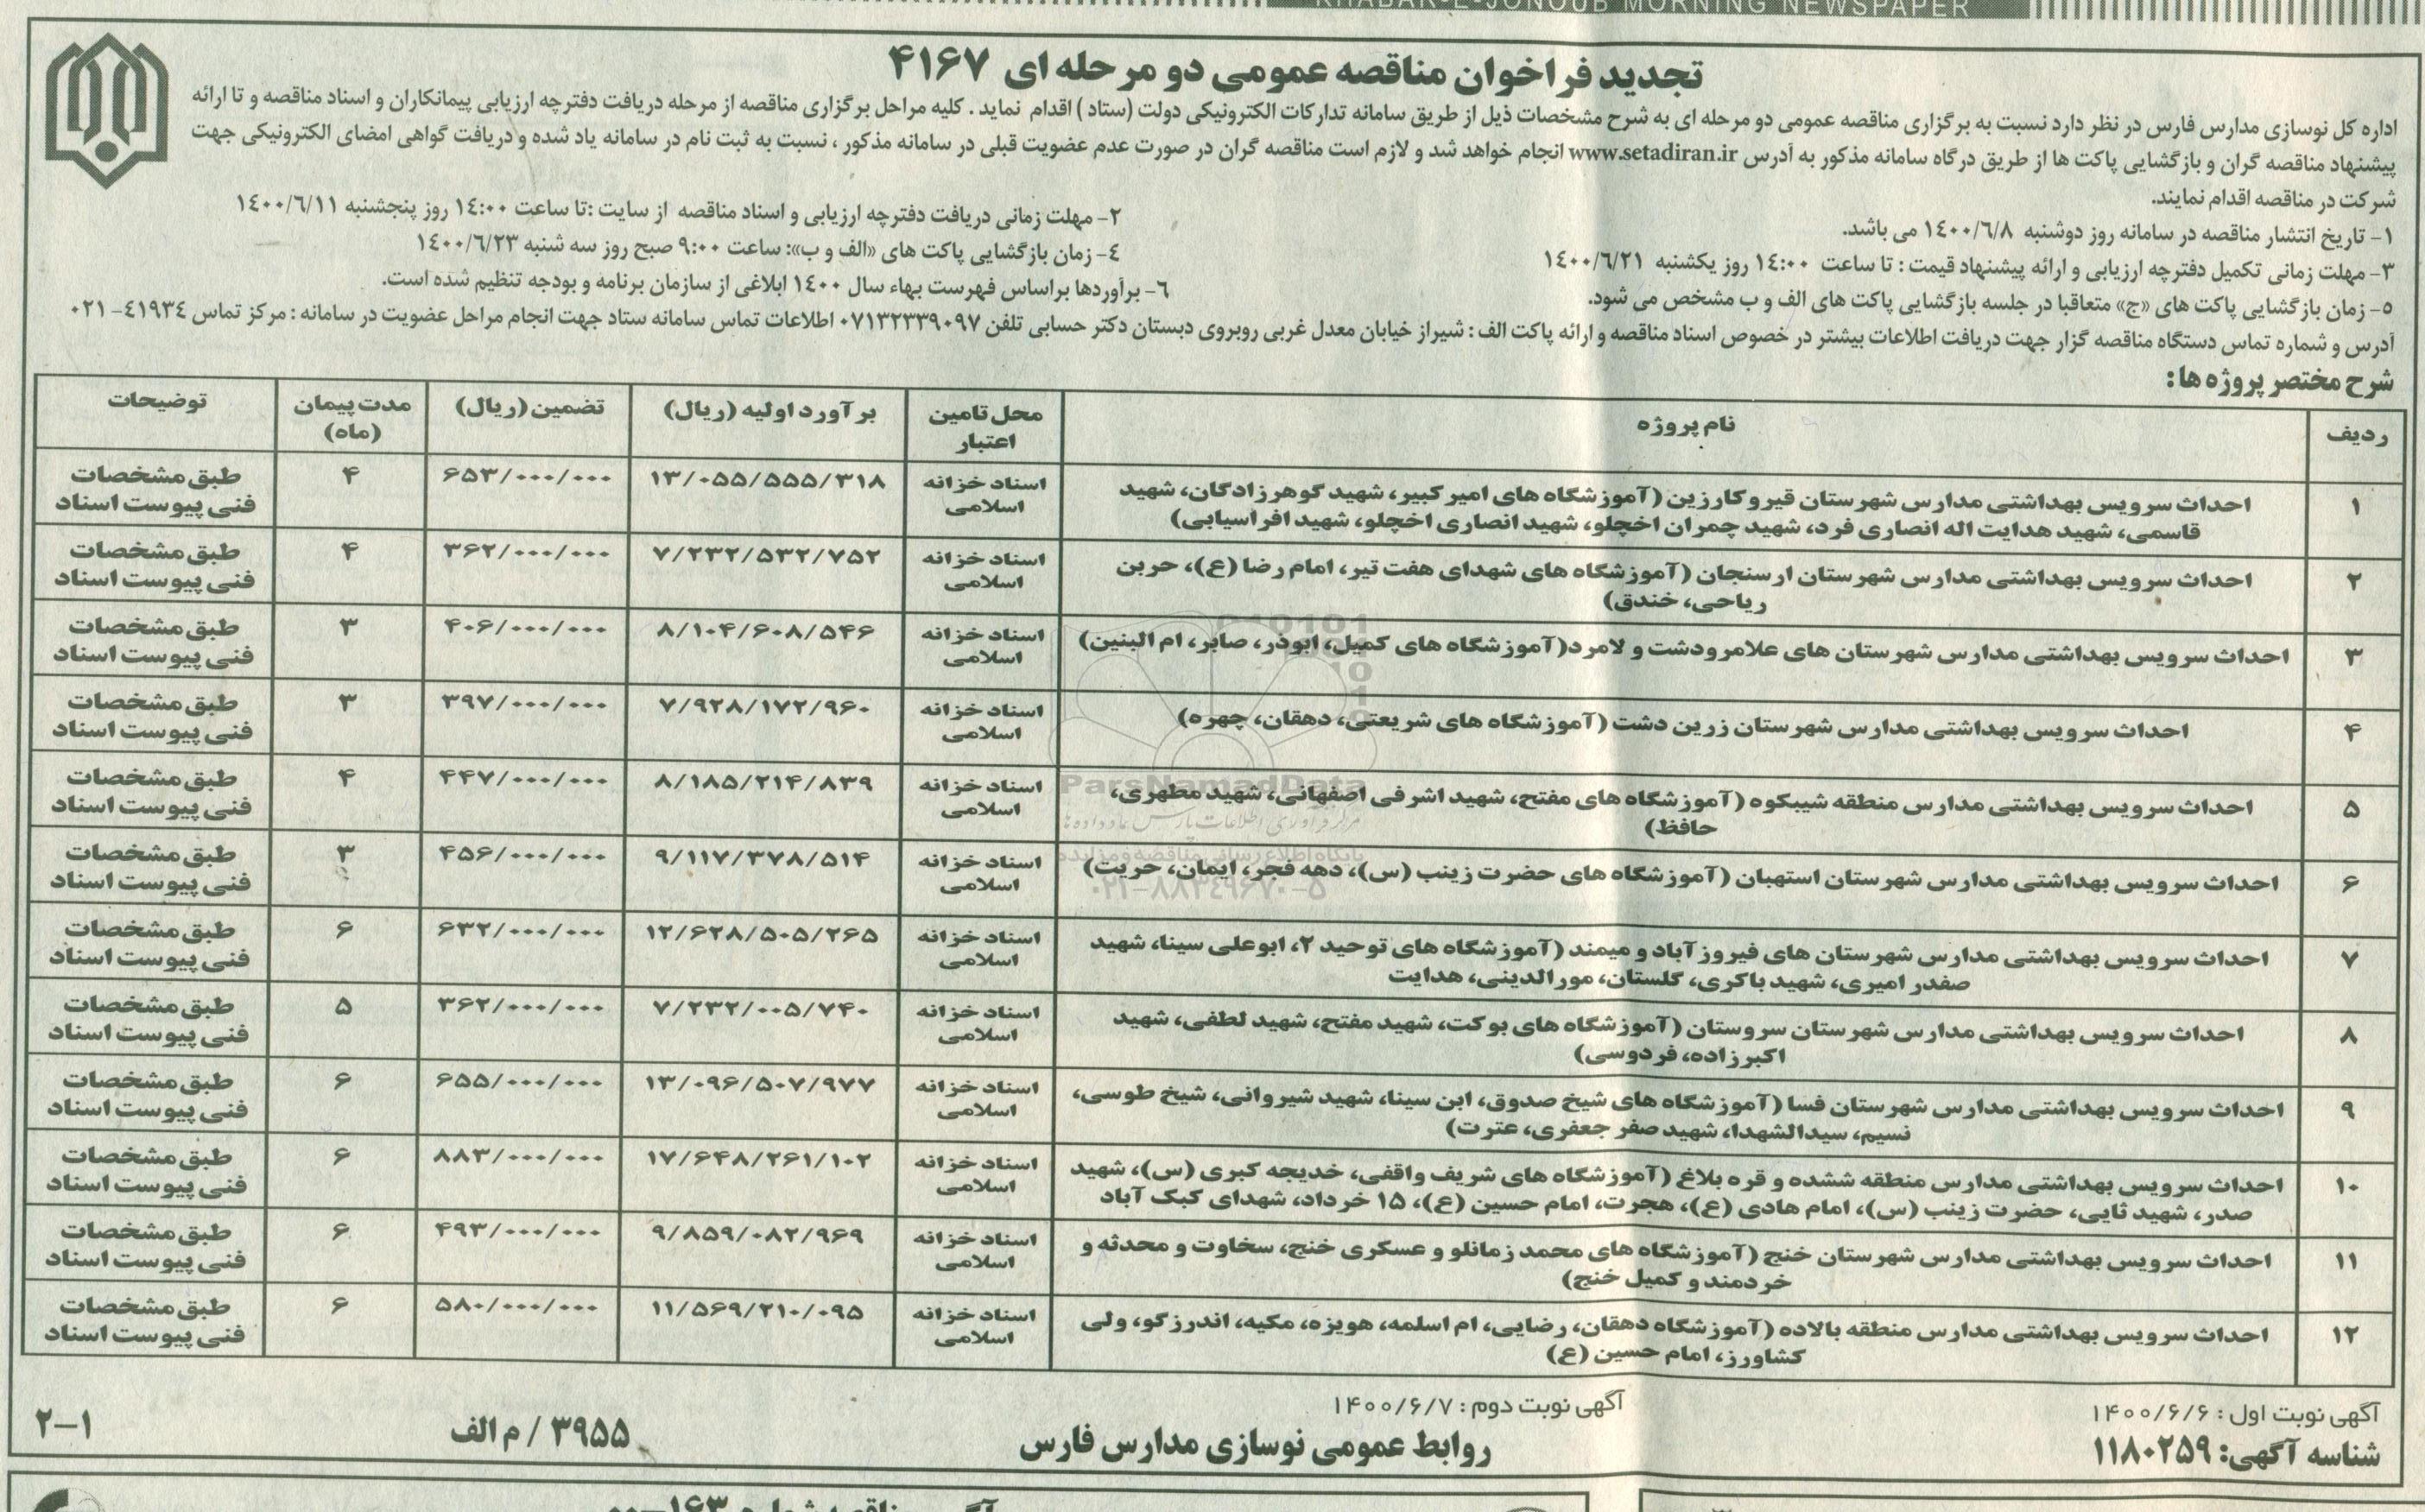 KHABAR-E-JONOUB MORNING NEWSPAPER
تجدید فراخوان مناقصه عمومی دو مرحله ای ۴۱۶۷
اداره کل نوسازی مدارس فارس در نظر دارد نسبت به برگزاری مناقصه عمومی دو مرحله ای به شرح مشخصات ذیل از طریق سامانه تدارکات الکترونیکی دولت (ستاد) اقدام نماید. کلیه مراحل برگزاری مناقصه از مرحله دریافت دفترچه ارزیابی پیمانکاران و اسناد مناقصه و تا ارائه
پیشنهاد مناقصه گران و بازگشایی پاکت ها از طریق درگاه سامانه مذکور به آدرس www.setadiran.ir انجام خواهد شد و لازم است مناقصه گران در صورت عدم عضویت قبلی در سامانه مذکور، نسبت به ثبت نام در سامانه یاد شده و دریافت گواهی امضای الکترونیکی جهت
شرکت در مناقصه اقدام نمایند.
۱- تاریخ انتشار مناقصه در سامانه روز دوشنبه ۱٤۰۰/٦/۸ می باشد.
۲- مهلت زمانی دریافت دفترچه ارزیابی و اسناد مناقصه از سایت :تا ساعت ۱٤:۰۰ روز پنجشنبه ۱٤۰۰/٦/۱۱
۳- مهلت زمانی تکمیل دفترچه ارزیابی و ارائه پیشنهاد قیمت : تا ساعت ۱٤:۰۰ روز یکشنبه ۱٤۰۰/٦/۲۱
٤- زمان بازگشایی پاکت های «الف و ب»: ساعت ۹:۰۰ صبح روز سه شنبه ۱٤۰۰/٦/۲۳
۵- زمان بازگشایی پاکت های «ج» متعاقبا در جلسه بازگشایی پاکت های الف و ب مشخص می شود.
٦- برآوردها براساس فهرست بهاء سال ۱٤۰۰ ابلاغی از سازمان برنامه و بودجه تنظیم شده است.
آدرس و شماره تماس دستگاه مناقصه گزار جهت دریافت اطلاعات بیشتر در خصوص اسناد مناقصه و ارائه پاکت الف : شیراز خیابان معدل غربی روبروی دبستان دکتر حسابی تلفن ۰۷۱۳۲۳۳۹۰۹۷ اطلاعات تماس سامانه ستاد جهت انجام مراحل عضویت در سامانه : مرکز تماس ٤۱۹۳٤- ۰۲۱
شرح مختصر پروژه ها:
ردیف نام پروژه محل تامین اعتبار برآورد اولیه (ریال) تضمین (ریال) مدت پیمان (ماه) توضیحات
۱ احداث سرویس بهداشتی مدارس شهرستان قیروکارزین (آموزشگاه های امیر کبیر، شهید گوهرزادگان، شهید
قاسمی، شهید هدایت اله انصاری فرد، شهید چمران اخچلو، شهید انصاری اخچلو، شهید افراسیابی) اسناد خزانه اسلامی ۱۳/۰۵۵/۵۵۵/۳۱۸ ۶۵۳/۰۰۰/۰۰۰ ۴ طبق مشخصات فنی پیوست اسناد
۲ احداث سرویس بهداشتی مدارس شهرستان ارسنجان (آموزشگاه های شهدای هفت تیر، امام رضا (ع)، حربن
ریاحی، خندق) اسناد خزانه اسلامی ۷/۲۳۲/۵۳۲/۷۵۲ ۳۶۲/۰۰۰/۰۰۰ ۴ طبق مشخصات فنی پیوست اسناد
۳ احداث سرویس بهداشتی مدارس شهرستان های علامرودشت و لامرد(آموزشگاه های کمیل، ابوذر، صابر، ام البنین) اسناد خزانه اسلامی ۸/۱۰۴/۶۰۸/۵۴۶ ۴۰۶/۰۰۰/۰۰۰ ۳ طبق مشخصات فنی پیوست اسناد
۴ احداث سرویس بهداشتی مدارس شهرستان زرین دشت (آموزشگاه های شریعتی، دهقان، چهره) اسناد خزانه اسلامی ۷/۹۲۸/۱۷۲/۹۶۰ ۳۹۷/۰۰۰/۰۰۰ ۳ طبق مشخصات فنی پیوست اسناد
۵ احداث سرویس بهداشتی مدارس منطقه شیبکوه (آموزشگاه های مفتح، شهید اشرفی اصفهانی، شهید مطهری،
حافظ) اسناد خزانه اسلامی ۸/۱۸۵/۲۱۴/۸۳۹ ۴۴۷/۰۰۰/۰۰۰ ۴ طبق مشخصات فنی پیوست اسناد
۶ احداث سرویس بهداشتی مدارس شهرستان استهبان (آموزشگاه های حضرت زینب (س)، دهه فجر، ایمان، حریت) اسناد خزانه اسلامی ۹/۱۱۷/۳۷۸/۵۱۴ ۴۵۶/۰۰۰/۰۰۰ ۳ طبق مشخصات فنی پیوست اسناد
۷ احداث سرویس بهداشتی مدارس شهرستان های فیروزآباد و میمند (آموزشگاه های توحید ۲، ابوعلی سینا، شهید
صفدر امیری، شهید باکری، گلستان، مورالدینی، هدایت اسناد خزانه اسلامی ۱۲/۶۲۸/۵۰۵/۲۶۵ ۶۳۲/۰۰۰/۰۰۰ ۶ طبق مشخصات فنی پیوست اسناد
۸ احداث سرویس بهداشتی مدارس شهرستان سروستان (آموزشگاه های بوکت، شهید مفتح، شهید لطفی، شهید
اکبرزاده، فردوسی) اسناد خزانه اسلامی ۷/۲۳۲/۰۰۵/۷۴۰ ۳۶۲/۰۰۰/۰۰۰ ۵ طبق مشخصات فنی پیوست اسناد
۹ احداث سرویس بهداشتی مدارس شهرستان فسا (آموزشگاه های شیخ صدوق، ابن سینا، شهید شیروانی، شیخ طوسی،
نسیم، سیدالشهدا، شهید صفر جعفری، عترت) اسناد خزانه اسلامی ۱۳/۰۹۶/۵۰۷/۹۷۷ ۶۵۵/۰۰۰/۰۰۰ ۶ طبق مشخصات فنی پیوست اسناد
۱۰ احداث سرویس بهداشتی مدارس منطقه ششده و قره بلاغ (آموزشگاه های شریف واقفی، خدیجه کبری (س)، شهید
صدر، شهید ثایی، حضرت زینب (س)، امام هادی (ع)، هجرت، امام حسین (ع)، ۱۵ خرداد، شهدای کبک آباد اسناد خزانه اسلامی ۱۷/۶۴۸/۲۶۱/۱۰۲ ۸۸۳/۰۰۰/۰۰۰ ۶ طبق مشخصات فنی پیوست اسناد
۱۱ احداث سرویس بهداشتی مدارس شهرستان خنج (آموزشگاه های محمد زمانلو و عسکری خنج، سخاوت و محدثه و
خردمند و کمیل خنج) اسناد خزانه اسلامی ۹/۸۵۹/۰۸۲/۹۶۹ ۴۹۳/۰۰۰/۰۰۰ ۶ طبق مشخصات فنی پیوست اسناد
۱۲ احداث سرویس بهداشتی مدارس منطقه بالاده (آموزشگاه دهقان، رضایی، ام اسلمه، هویزه، مکیه، اندرزگو، ولی
کشاورز، امام حسین (ع) اسناد خزانه اسلامی ۱۱/۵۶۹/۲۱۰/۰۹۵ ۵۸۰/۰۰۰/۰۰۰ ۶ طبق مشخصات فنی پیوست اسناد
ParsNamadData
پایگاه اطلاع رسانی مناقصه و مزایده
۰۲۱-۸۸۳۴۹۶۷۰-۵
آگهی نوبت اول : ۱۴۰۰/۶/۶
آگهی نوبت دوم : ۱۴۰۰/۶/۷
شناسه آگهی: ۱۱۸۰۲۵۹
روابط عمومی نوسازی مدارس فارس
۳۹۵۵ / م الف
۲-۱